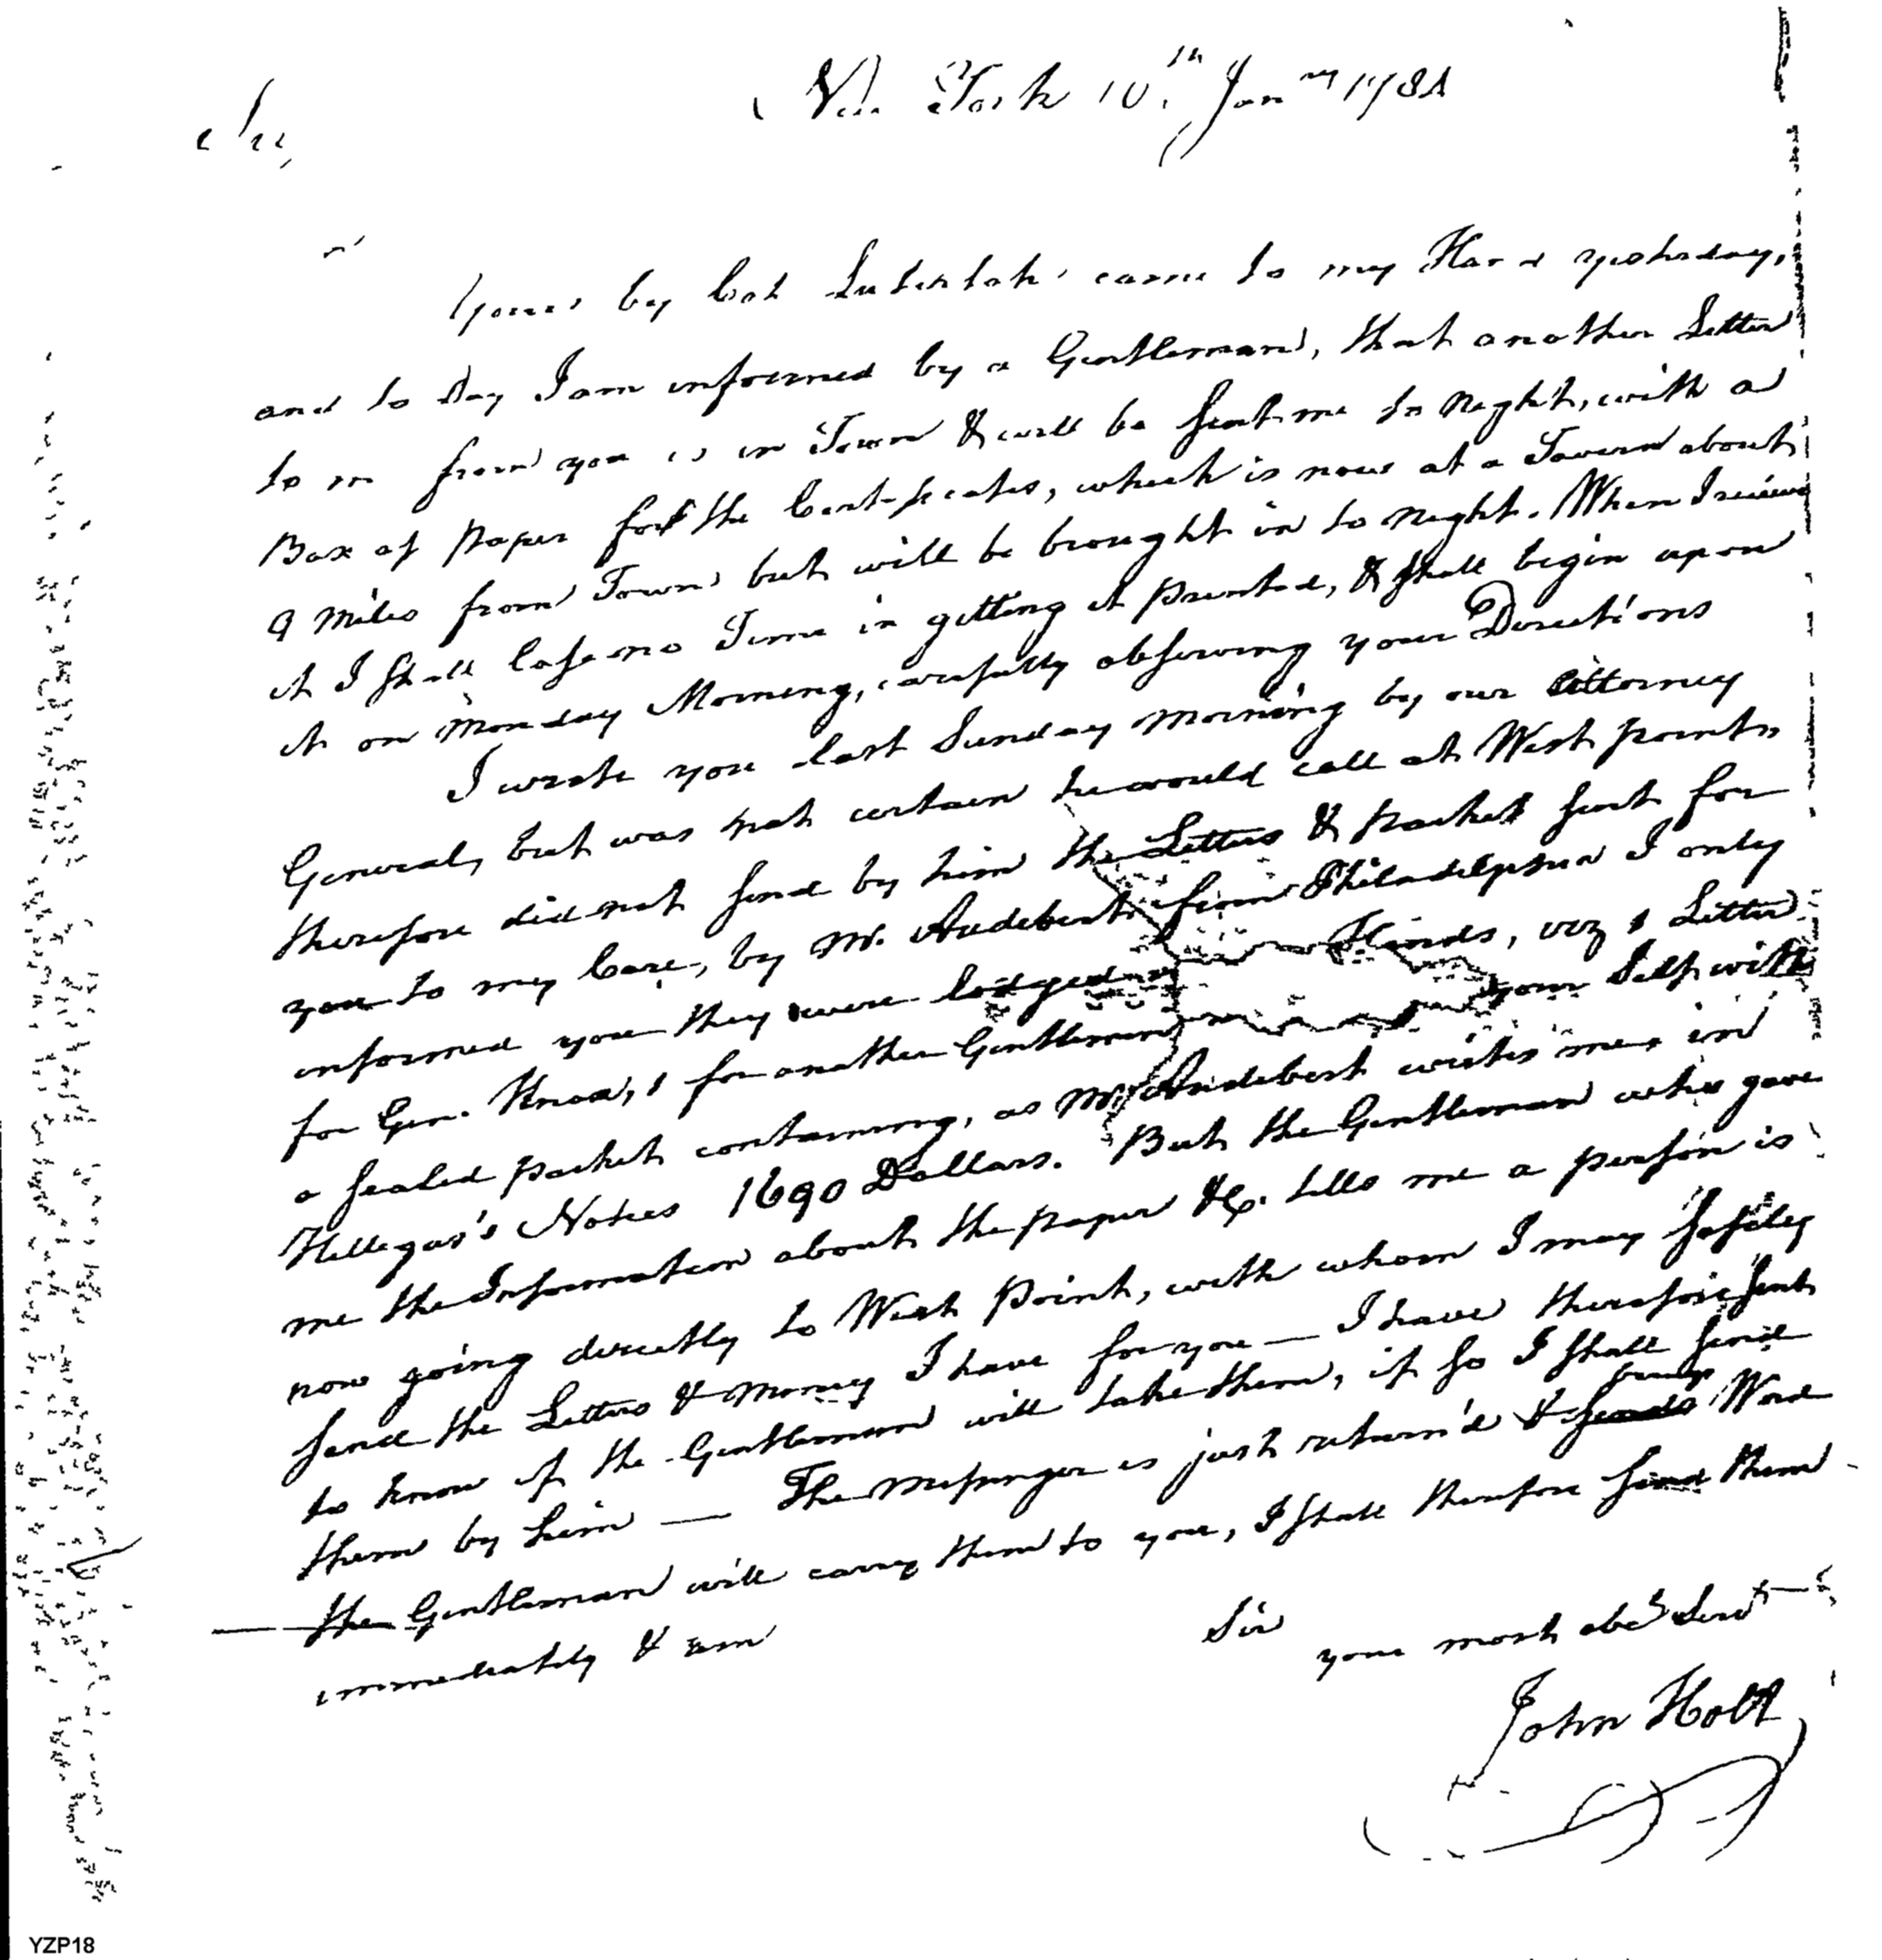 New York 10th Jany 178
Sir,
Yours by Col came to my Hand yesterday,
and to Day I am informed by a Gentleman, that another Letter
to m from you is in Town & will be sent me to Night, with a
Box of Paper for the Certificates, which is now at a Tavern about
9 Miles from Town but will be brought in to Night. When I receive
it I shall lose no Time in getting it printed, & shall begin upon
it on Monday Morning, carefully observing your Directions
I wrote you last Sunday Morning by our Attorney
General, but was not certain he would call at West point,
therefore did not send by him the Letters & packet sent for
you to my Care, by Mr. Audebert from Philadelphia I only
informed you they were lodged Hands, viz 1 Letter
for Gen. Knox, 1 for another Gentleman your Self with
a sealed packet containing, as Mr. Audebert writes me in
Hillegas's Notes 1690 Dollars. But the Gentleman who gave
me the Information about the paper &c. tells me a person is
now going directly to West Point, with whom I may safely
send the Letters & Money I have for you — I have therefore sent
to know if the Gentleman will take them, if so I shall send
them by him — The Messenger is just return'd & sends brings Word
the Gentleman will carry them to you, I shall therefore send them
immediately & am
Sir
your most obt Servt
John Holt
YZP18